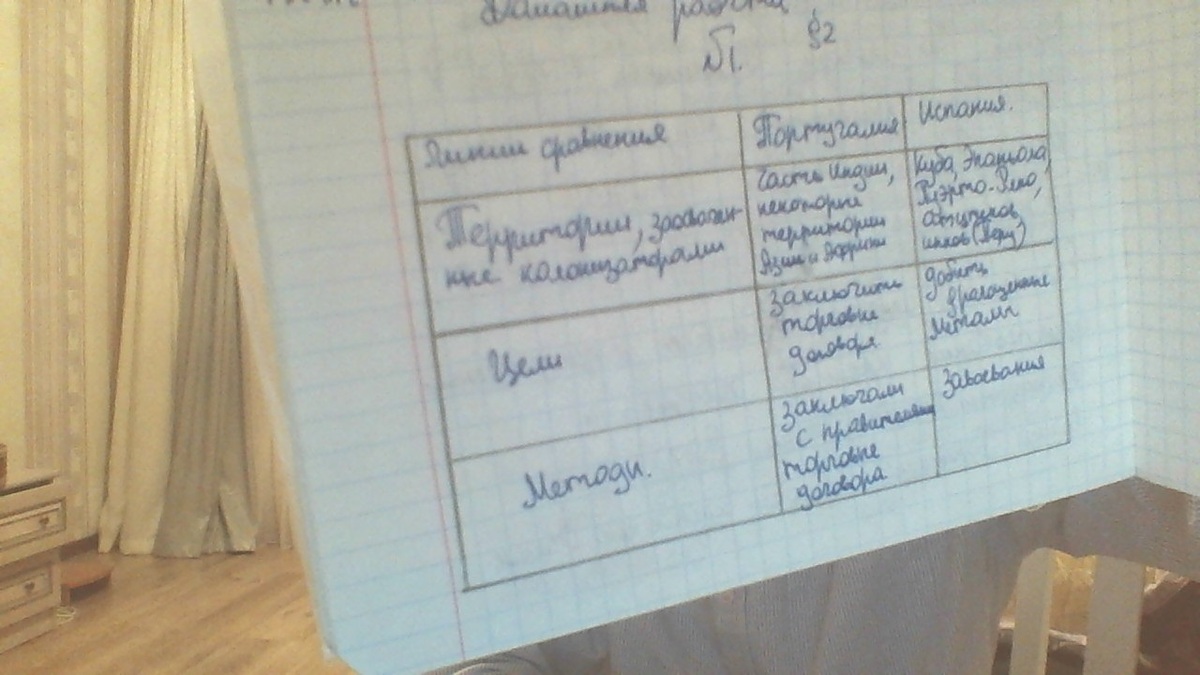 Домашняя работа
§2
№1.
Линии сравнения
Португалия
Испания.
Территории, завоёван-
ные колонизаторами
Часть Индии,
некоторые
территории
Азии и Африки
Куба, Эспаньола,
Пуэрто-Рико,
инков (Перу)
Цели
Заключить
торговые
договора
Добыть
драгоценные
металлы
Методы.
Заключали
с правителями
торговые
договора
Завоевания